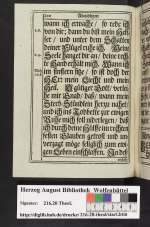 wann ich erwache / so rede ich
von dir; dann du bist mein Hel-
fer / und unter dem Schatten
deiner Flügel ruhe ich. Meine
Seele hanget dir an; deine rech-
te Hand erhält mich. Wann ich
im finstern sitze / so ist doch der
HErr mein Liecht und mein
Heil. O gütiger Gott / verley-
he mir Gnad / daß / wann mein
Sterb-Stündlein herzu nahet /
und ich ins Todbette zur ewigen
Ruhe mich soll niderlegen / daß
ich durch deine Hülffe im rechten
festen Glauben getrost und un-
verzagt möge seliglich zum ewi-
gen Leben einschlaffen. In deß
Herzog August Bibliothek Wolfenbüttel
Signatur: 216.20 Theol.
http://diglib.hab.de/drucke/216-20-theol/start.htm